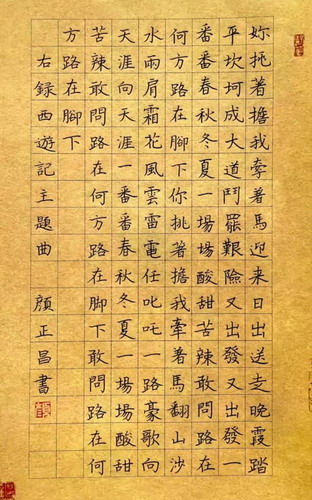 妳挑著擔我牽著馬迎来日出送走晚霞踏
平坎坷成大道鬥罷艱險又出發又出發一
番番春秋冬夏一場場酸甜苦辣敢問路在
何方路在腳下你挑著擔我牽著馬翻山涉
水兩肩霜花風雲雷電任叱吒一路豪歌向
天涯向天涯一番番春秋冬夏一場場酸甜
苦辣敢問路在何方路在脚下敢問路在何
方路在腳下
右録西遊記主題曲 顔正昌書